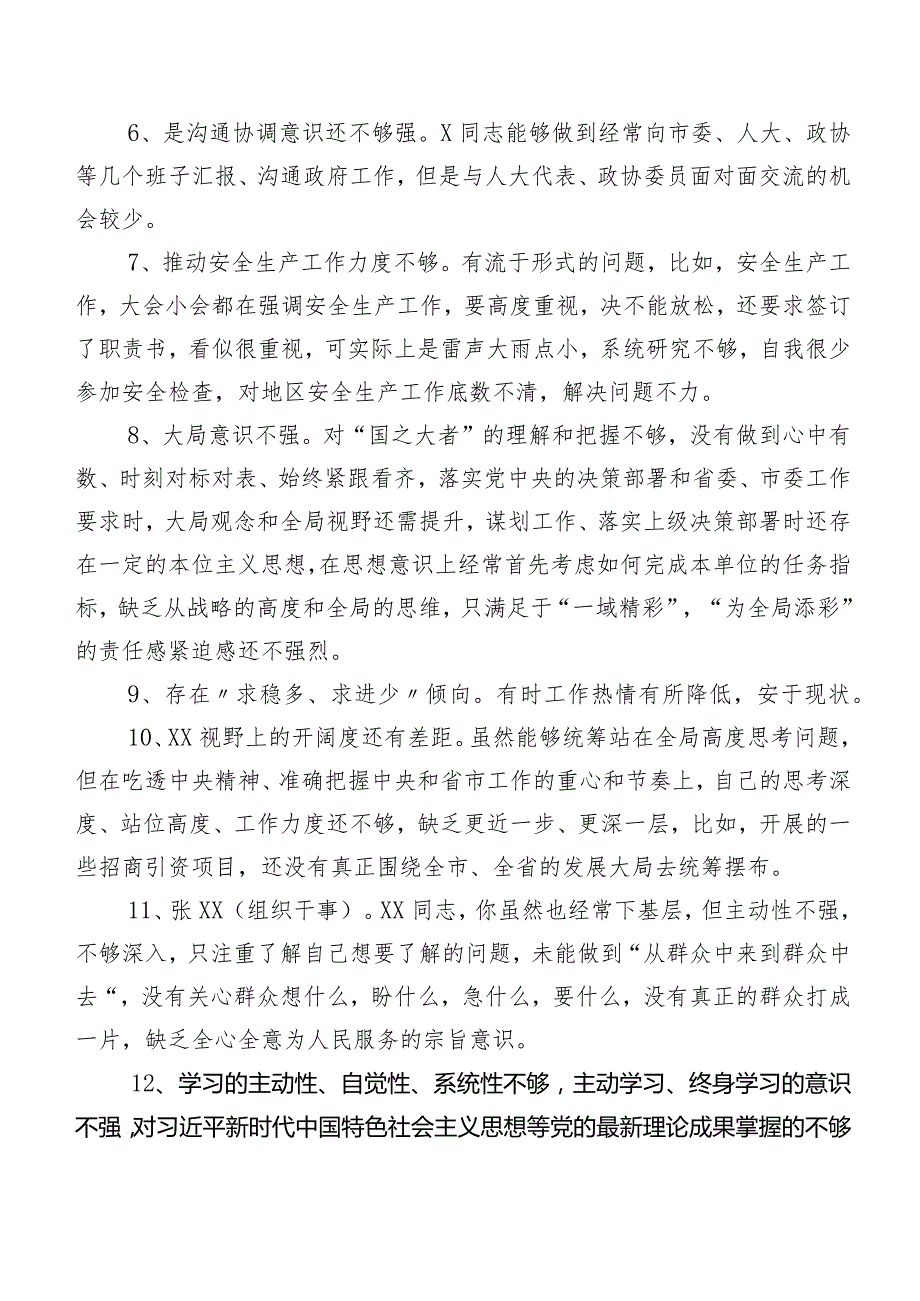 6、是沟通协调意识还不够强。X同志能够做到经常向市委、人大、政协
等几个班子汇报、沟通政府工作，但是与人大代表、政协委员面对面交流的机
会较少。
7、推动安全生产工作力度不够。有流于形式的问题，比如，安全生产工
作，大会小会都在强调安全生产工作，要高度重视，决不能放松，还要求签订
了职责书，看似很重视，可实际上是雷声大雨点小，系统研究不够，自我很少
参加安全检查，对地区安全生产工作底数不清，解决问题不力。
8、大局意识不强。对“国之大者”的理解和把握不够，没有做到心中有
数、时刻对标对表、始终紧跟看齐，落实党中央的决策部署和省委、市委工作
要求时，大局观念和全局视野还需提升，谋划工作、落实上级决策部署时还存
在一定的本位主义思想，在思想意识上经常首先考虑如何完成本单位的任务指
标，缺乏从战略的高度和全局的思维，只满足于“一域精彩”，“为全局添彩”
的责任感紧迫感还不强烈。
9、存在〃求稳多、求进少〃倾向。有时工作热情有所降低，安于现状。
10、XX视野上的开阔度还有差距。虽然能够统筹站在全局高度思考问题，
但在吃透中央精神、准确把握中央和省市工作的重心和节奏上，自己的思考深
度、站位高度、工作力度还不够，缺乏更近一步、更深一层，比如，开展的一
些招商引资项目，还没有真正围绕全市、全省的发展大局去统筹摆布。
11、张XX（组织干事）。XX同志，你虽然也经常下基层，但主动性不强，
不够深入，只注重了解自己想要了解的问题，未能做到“从群众中来到群众中
去“，没有关心群众想什么，盼什么，急什么，要什么，没有真正的群众打成
一片，缺乏全心全意为人民服务的宗旨意识。
12、学习的主动性、自觉性、系统性不够，主动学习、终身学习的意识
不强，对习近平新时代中国特色社会主义思想等党的最新理论成果掌握的不够